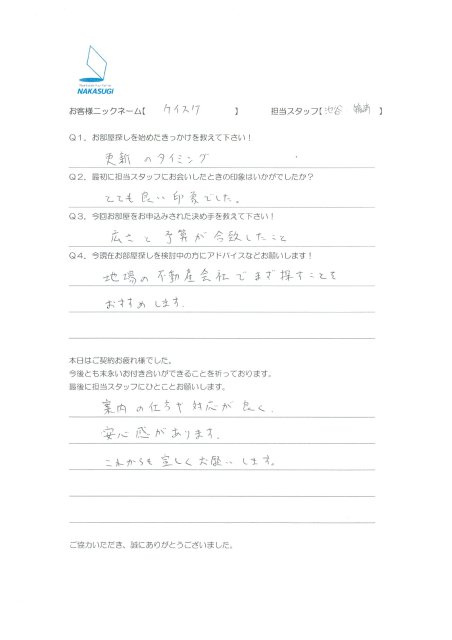 NAKASUGI
お客様ニックネーム【 ケイスケ 】 担当スタッフ【 池谷 】
Q1、お部屋探しを始めたきっかけを教えて下さい！
更新のタイミング
Q2、最初に担当スタッフにお会いしたときの印象はいかがでしたか？
とても良い印象でした。
Q3、今回お部屋をお申込みされた決め手を教えて下さい！
広さと予算が合致したこと
Q4、今現在お部屋探しを検討中の方にアドバイスなどお願いします！
地場の不動産会社でまず探すことを
おすすめします.
本日はご契約お疲れ様でした。
今後とも末永いお付き合いができることを祈っております。
最後に担当スタッフにひとことお願いします。
案内の仕方や対応が良く、
安心感があります.
これからも宜しくお願いします。
ご協力いただき、誠にありがとうございました。